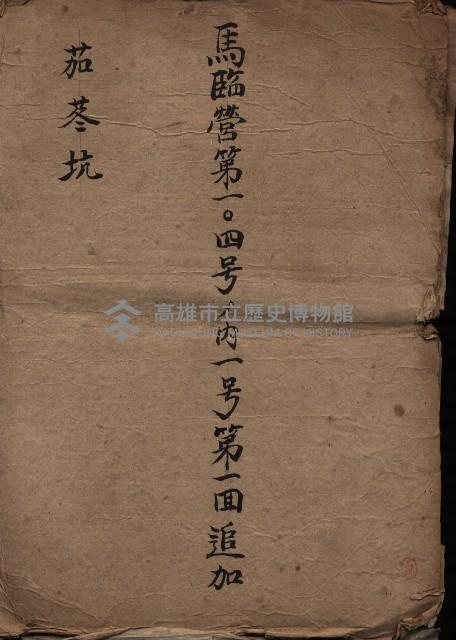 馬臨營第一〇四号ノ内一号第一囬追加
茄苳坑
高雄市立歷史博物館
KAOHSIUNG MUSEUM OF HISTORY